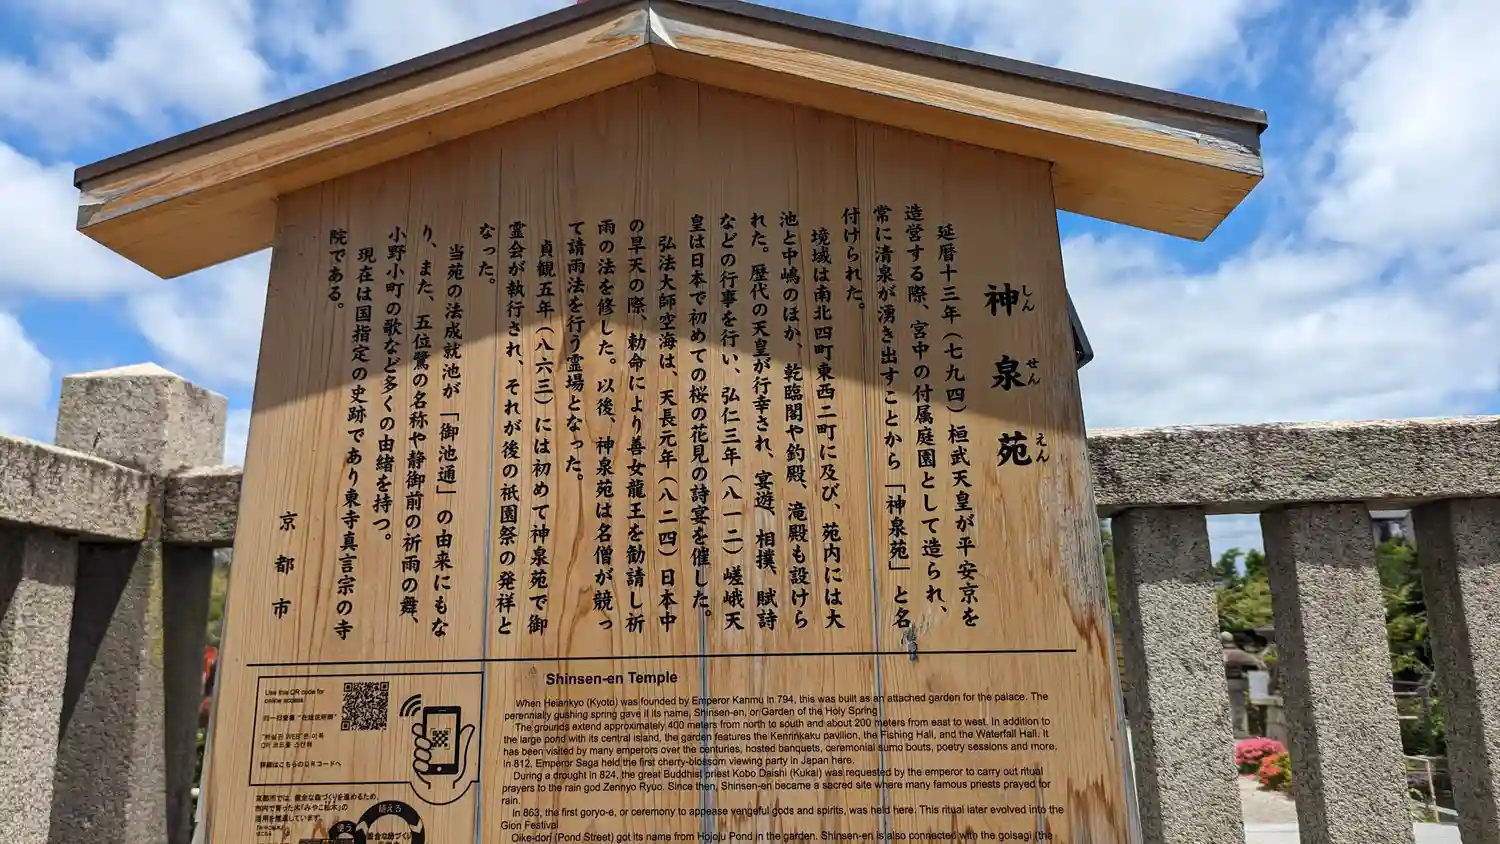 神泉苑
しんせんえん
延暦十三年(七九四)桓武天皇が平安京を
造営する際、宮中の付属庭園として造られ、
常に清泉が湧き出すことから「神泉苑」と名
付けられた。
境域は南北四町東西二町に及び、苑内には大
池と中嶋のほか、乾臨閣や釣殿、滝殿も設けら
れた。歴代の天皇が行幸され、宴遊、相撲、賦詩
などの行事を行い、弘仁三年(八一二)嵯峨天
皇は日本で初めての桜の花見の詩宴を催した。
弘法大師空海は、天長元年(八二四)日本中
の旱天の際、勅命により善女龍王を勧請し祈
雨の法を修した。以後、神泉苑は名僧が競っ
て請雨法を行う霊場となった。
貞観五年(八六三)には初めて神泉苑で御
霊会が執行され、それが後の祇園祭の発祥と
なった。
当苑の法成就池が「御池通」の由来にもな
り、また、五位鷺の名称や静御前の祈雨の舞、
小野小町の歌など多くの由緒を持つ。
現在は国指定の史跡であり東寺真言宗の寺
院である。
京都市
Use this QR code for
online access
扫一扫查看“在线说明牌”
"해설판 WEB"은 이쪽
QR 코드를 스캔해
詳細はこちらのQRコードへ
京都市では、健全な森づくりを進めるため、
市内で育った木「みやこ杣木」の
活用を推進しています。
植える
使う
Shinsen-en Temple
When Heiankyo (Kyoto) was founded by Emperor Kanmu in 794, this was built as an attached garden for the palace. The
perennially gushing spring gave it its name, Shinsen-en, or Garden of the Holy Spring
The grounds extend approximately 400 meters from north to south and about 200 meters from east to west. In addition to
the large pond with its central island, the garden features the Kenrinkaku pavilion, the Fishing Hall, and the Waterfall Hall. It
has been visited by many emperors over the centuries, hosted banquets, ceremonial sumo bouts, poetry sessions and more.
In 812, Emperor Saga held the first cherry-blossom viewing party in Japan here.
During a drought in 824, the great Buddhist priest Kobo Daishi (Kukai) was requested by the emperor to carry out ritual
prayers to the rain god Zennyo Ryuo. Since then, Shinsen-en became a sacred site where many famous priests prayed for
rain.
In 863, the first goryo-e, or ceremony to appease vengeful gods and spirits, was held here. This ritual later evolved into the
Gion Festival
Oike-dori (Pond Street) got its name from Hojoju Pond in the garden. Shinsen-en is also connected with the goisagi (the